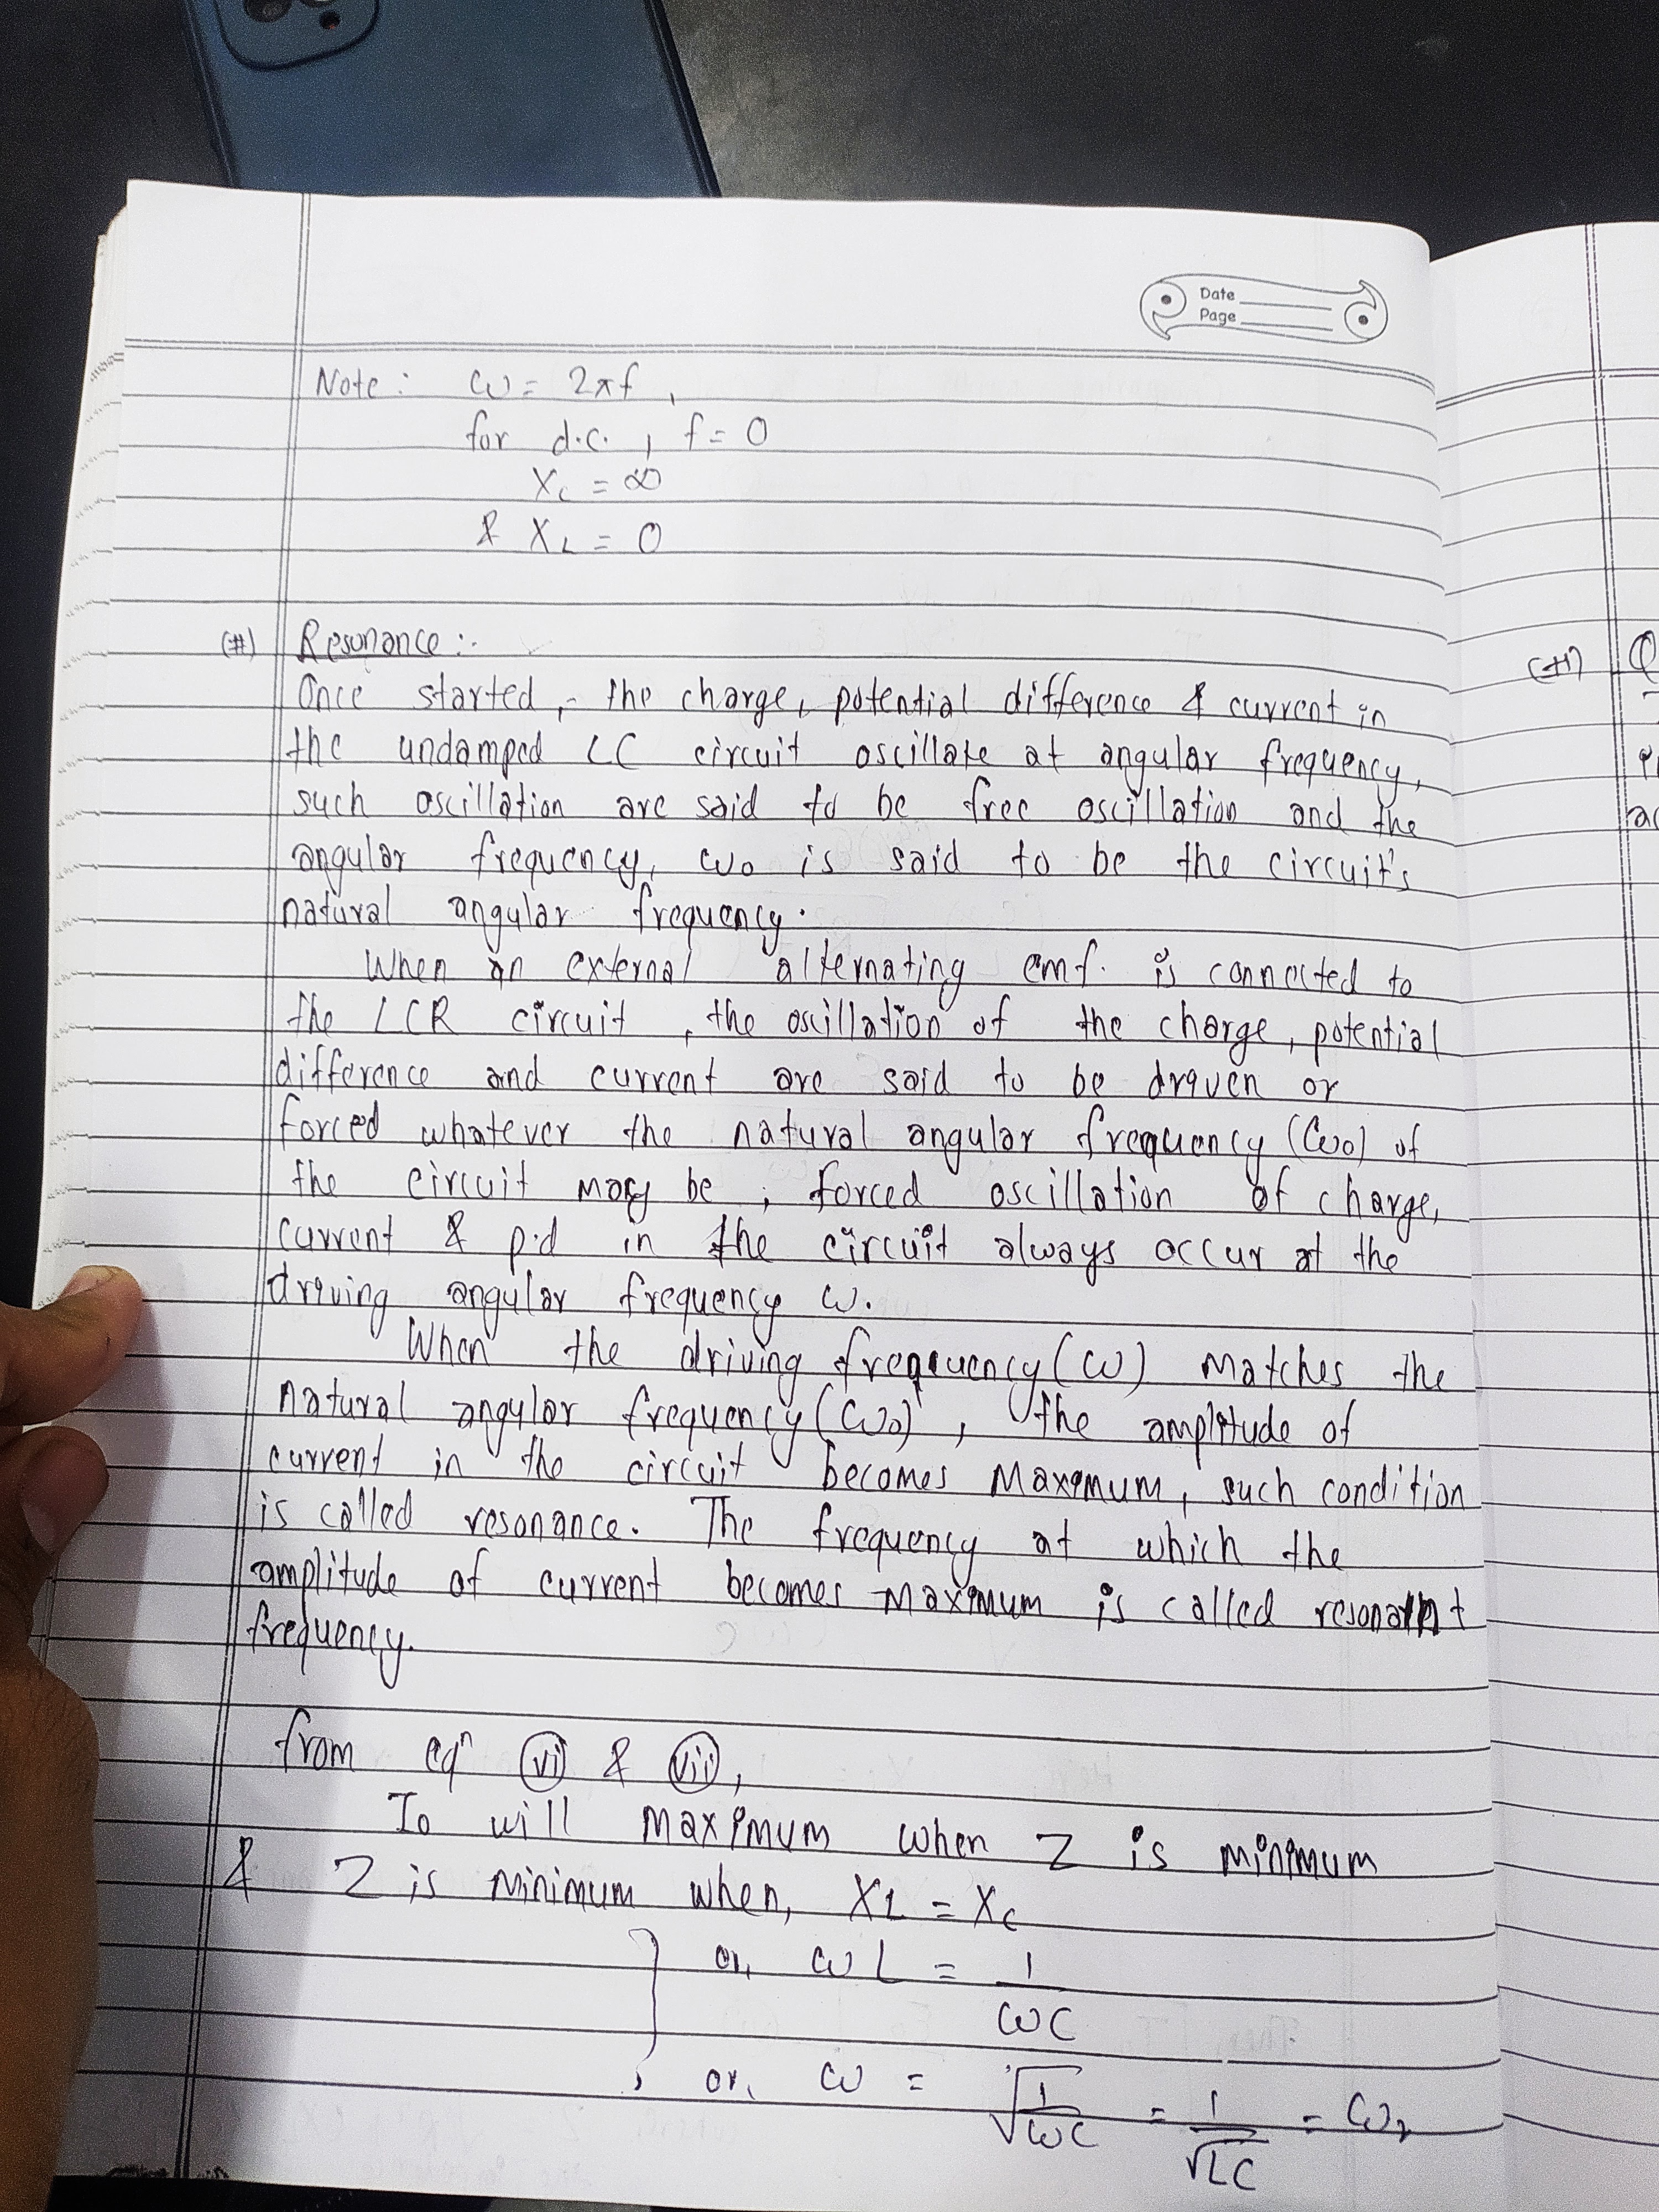 Date
Page
Note: ω = 2πf,
for d.c., f = 0
Xc = ∞
& XL = 0
(#) Resonance :-
Once started, the charge, potential difference & current in
the undamped LC circuit oscillate at angular frequency,
such oscillation are said to be free oscillation and the
angular frequency, ω₀ is said to be the circuit's
natural angular frequency.
When an external alternating emf. is connected to
the LCR circuit, the oscillation of the charge, potential
difference and current are said to be driven or
forced whatever the natural angular frequency (ω₀) of
the circuit may be, forced oscillation of charge,
current & p.d in the circuit always occur at the
driving angular frequency ω.
When the driving frequency (ω) matches the
natural angular frequency (ω₀), the amplitude of
current in the circuit becomes maximum, such condition
is called resonance. The frequency at which the
amplitude of current becomes maximum is called resonant
frequency.
from eqⁿ (vi) & (vii),
I₀ will maximum when Z is minimum
& Z is minimum when, XL = Xc
or, ωL = 1/ωC
or, ω = √(1/ωC) = 1/√LC = ωr
(#) Q